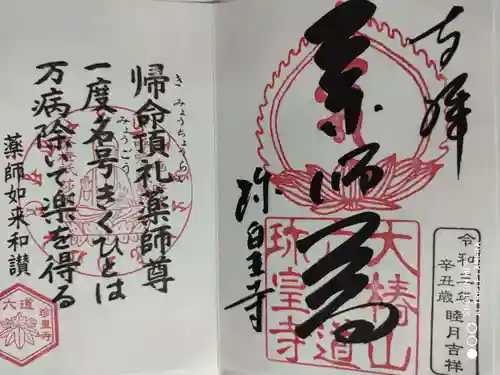 奉拝
薬師尊
珍皇寺
大椿山
六道
珍皇寺
令和三年
辛丑歳 睦月吉祥
帰命頂礼薬師尊
きみょうちょうらい
一度名号きくひとは
みょうごう
万病除いて楽を得る
薬師如来和讃
六道
珍皇寺